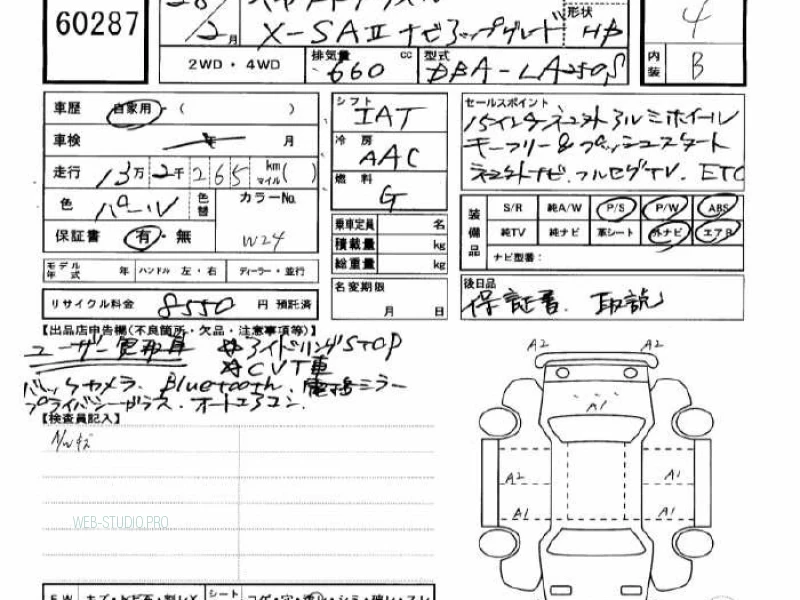 60287
28/2月
X-SAⅡ ナビアップグレード
形状 HB
4
2WD・4WD
排気量 660 cc
型式 DBA-LA250S
内装 B
車歴 自家用・( )
車検 年 月
走行 13万2千265 km マイル( )
色 パール
色替
カラーNo. W24
保証書 有・無
モデル年式 年 ハンドル 左・右 ディーラー・並行
リサイクル料金 8550 円 預託済
シフト IAT
冷房 AAC
燃料 G
乗車定員 名
積載量 kg
総重量 kg
名変期限 月 日
セールスポイント
15インチ社外アルミホイール
キーフリー&プッシュスタート
社外ナビ.フルセグTV. ETC
装備品
S/R 純A/W P/S P/W ABS
純TV 純ナビ 革シート 外ナビ エアB
ナビ型番:
後日品
保証書. 取説
【出品店申告欄(不良箇所・欠品・注意事項等)】
ユーザー買取車 ☆アイドリングSTOP
☆CVT車
バックカメラ. Bluetooth. 電格ミラー
プライバシーガラス. オートエアコン.
【検査員記入】
A2 A2
A1
A2 A1
A1 A1
WEB-STUDIO.PRO
シート